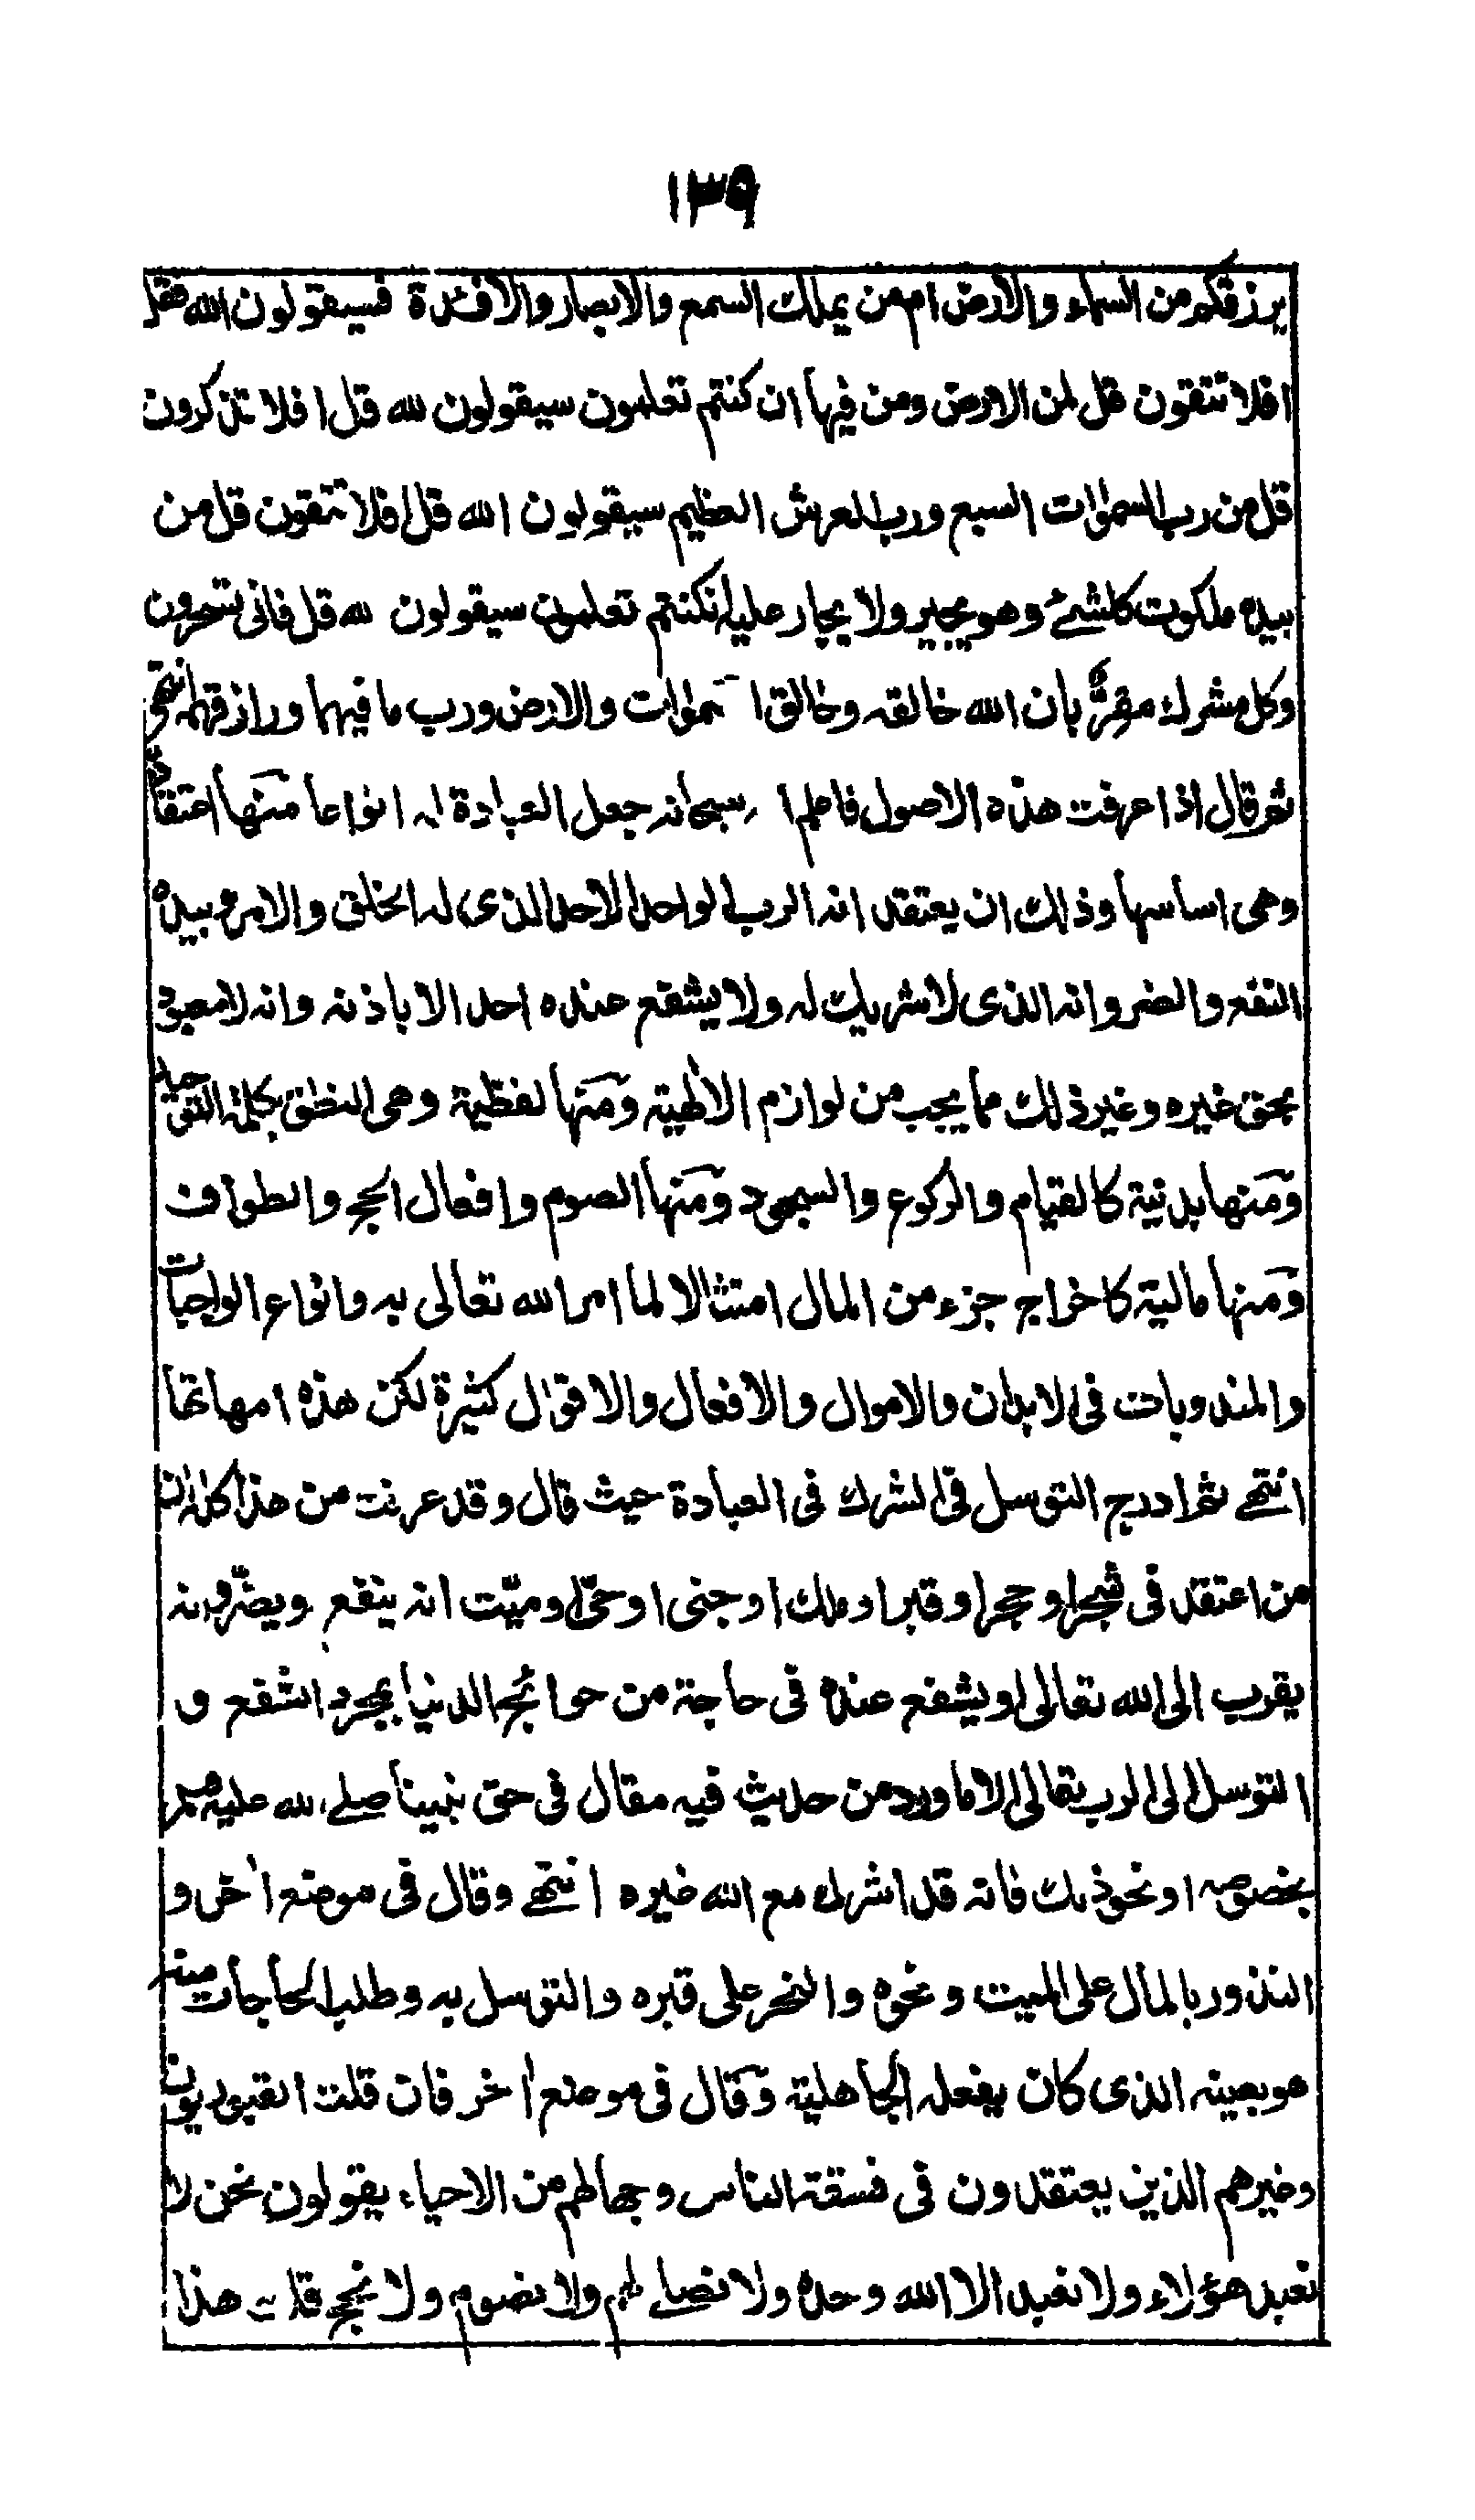 ١٣٩
يرزقكم من السماء والارض ام من يملك السمع والابصار والافئدة فسيقولون الله فقل
افلا تتقون قل لمن الارض ومن فيها ان كنتم تعلمون سيقولون لله قل افلا تذكرون
قل من رب السموات السبع ورب العرش العظيم سيقولون الله قل افلا تتقون قل من
بيده ملكوت كل شئ وهو يجير ولا يجار عليه ان كنتم تعلمون سيقولون لله قل فانى تسحرون
وكل مشرك مقر بان الله خالقه وخالق السموات والارض ورب ما فيهما ورازقهم انتهى
ثم قال اذا عرفت هذه الاصول فاعلم ا سبحانه جعل العبادة له انواعا منها اعتقادية
وهى اساسها وذلك ان يعتقد انه الرب الواحد الاحد الذى له الخلق والامر وبيده
النفع والضر وانه الذى لا شريك له ولا يشفع عنده احد الا باذنه وانه لا معبود
بحق غيره وغير ذلك مما يجب من لوازم الالٰهية ومنها لفظية وهى النطق بكلمة التوحيد
ومنها بدنية كالقيام والركوع والسجود ومنها الصوم وافعال الحج والطواف
ومنها مالية كاخراج جزء من المال امتثالا لما امر الله تعالى به وانواع الواجبات
والمندوبات فى الابدان والاموال والافعال والاقوال كثيرة لكن هذه امهاتها
انتهى ثم ادرج التوسل فى الشرك فى العبادة حيث قال وقد عرفت من هذا كله ان
من اعتقد فى شجر او حجر او قبر او ملك او جنى او حىّ او ميّت انه ينفع ويضرّ وانه
يقرب الى الله تعالى او يشفع عنده فى حاجة من حوائج الدنيا بمجرد التشفع و
التوسل الى الرب تعالى الا ما ورد من حديث فيه مقال فى حق نبينا صلى الله عليه وسلم
بخصوصه او نحو ذلك فانه قد اشرك مع الله غيره انتهى وقال فى موضع اٰخر و
النذور بالمال على الميت ونحوه والنحر على قبره والتوسل به وطلب الحاجات منه
هو بعينه الذى كان يفعله الجاهلية وقال فى موضع اٰخر فان قلت القبوريون
وغيرهم الذين يعتقدون فى فسقة الناس وجهالهم من الاحياء يقولون نحن لا
نعبد هؤلاء ولا نعبد الا الله وحده ولا نصلى لهم ولا نصوم ولا نحج قلت هذا